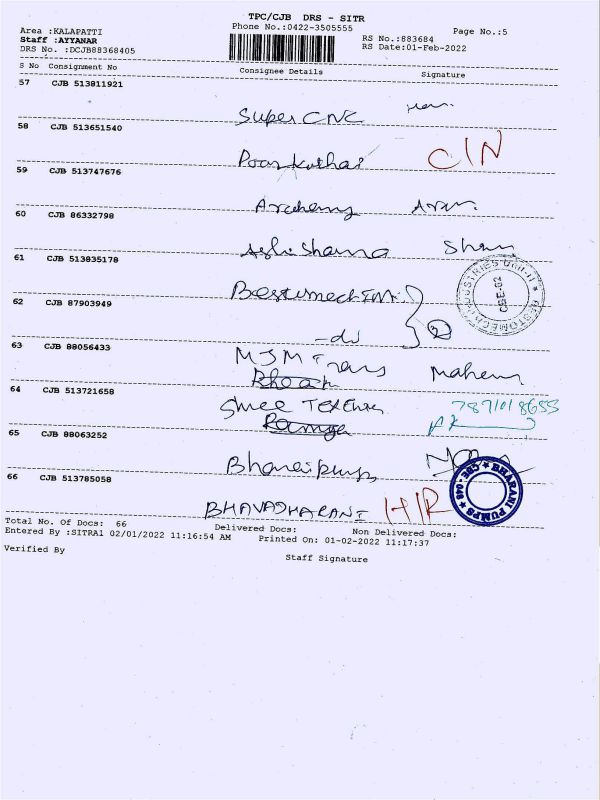 TPC/CJB DRS - SITR
Area :KALAPATTI
Phone No.:0422-3505555
Page No.:5
Staff :AYYANAR
RS No.:883684
DRS No. :DCJB88368405
RS Date:01-Feb-2022
S No Consignment No Consignee Details Signature
57 CJB 513811921
Super CNC
58 CJB 513651540
CIN
59 CJB 513747676
60 CJB 86332798
61 CJB 513835178
INDUSTRIES Unit-II
CBE-62
62 CJB 87903949
-do 2
63 CJB 88056433
MSM Trans Mahen
64 CJB 513721658
Shree 7871018655
65 CJB 88063252
Bharaipumps
66 CJB 513785058
BHARANI PUMPS CBE-048
BHAVADHARANI H/R
Total No. Of Docs: 66 Delivered Docs: Non Delivered Docs:
Entered By :SITRA1 02/01/2022 11:16:54 AM Printed On: 01-02-2022 11:17:37
Verified By Staff Signature